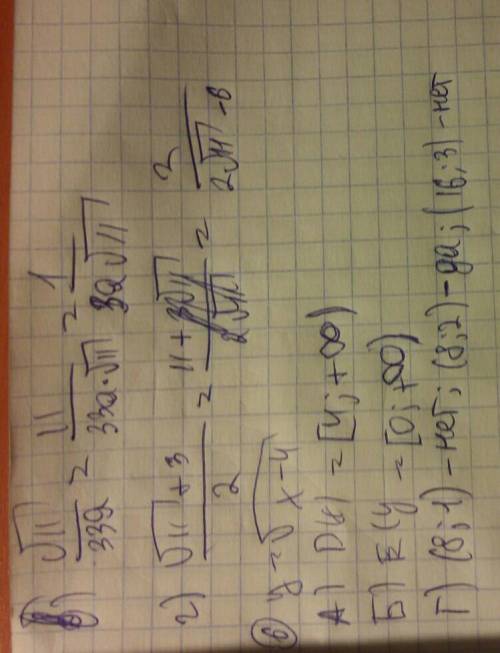 в) √11/33a = 11/33a·√11 = 1/3a√11
2) √11 + 3/2 = 11 + 3√11/2√11 = 2/2√11 - 6
⑥ y = √x-4
А) D(y) = [4; +∞)
Б) E(y = [0; +∞)
Г) (8;1) - нет; (8;2) - да; (16;3) - нет